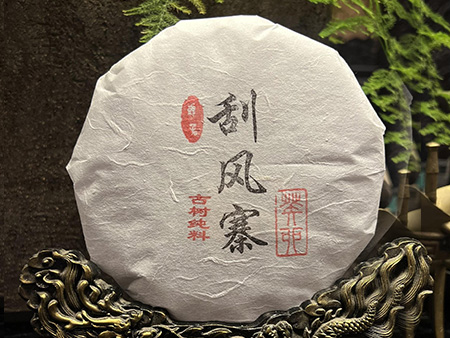 刮风寨
古树纯料